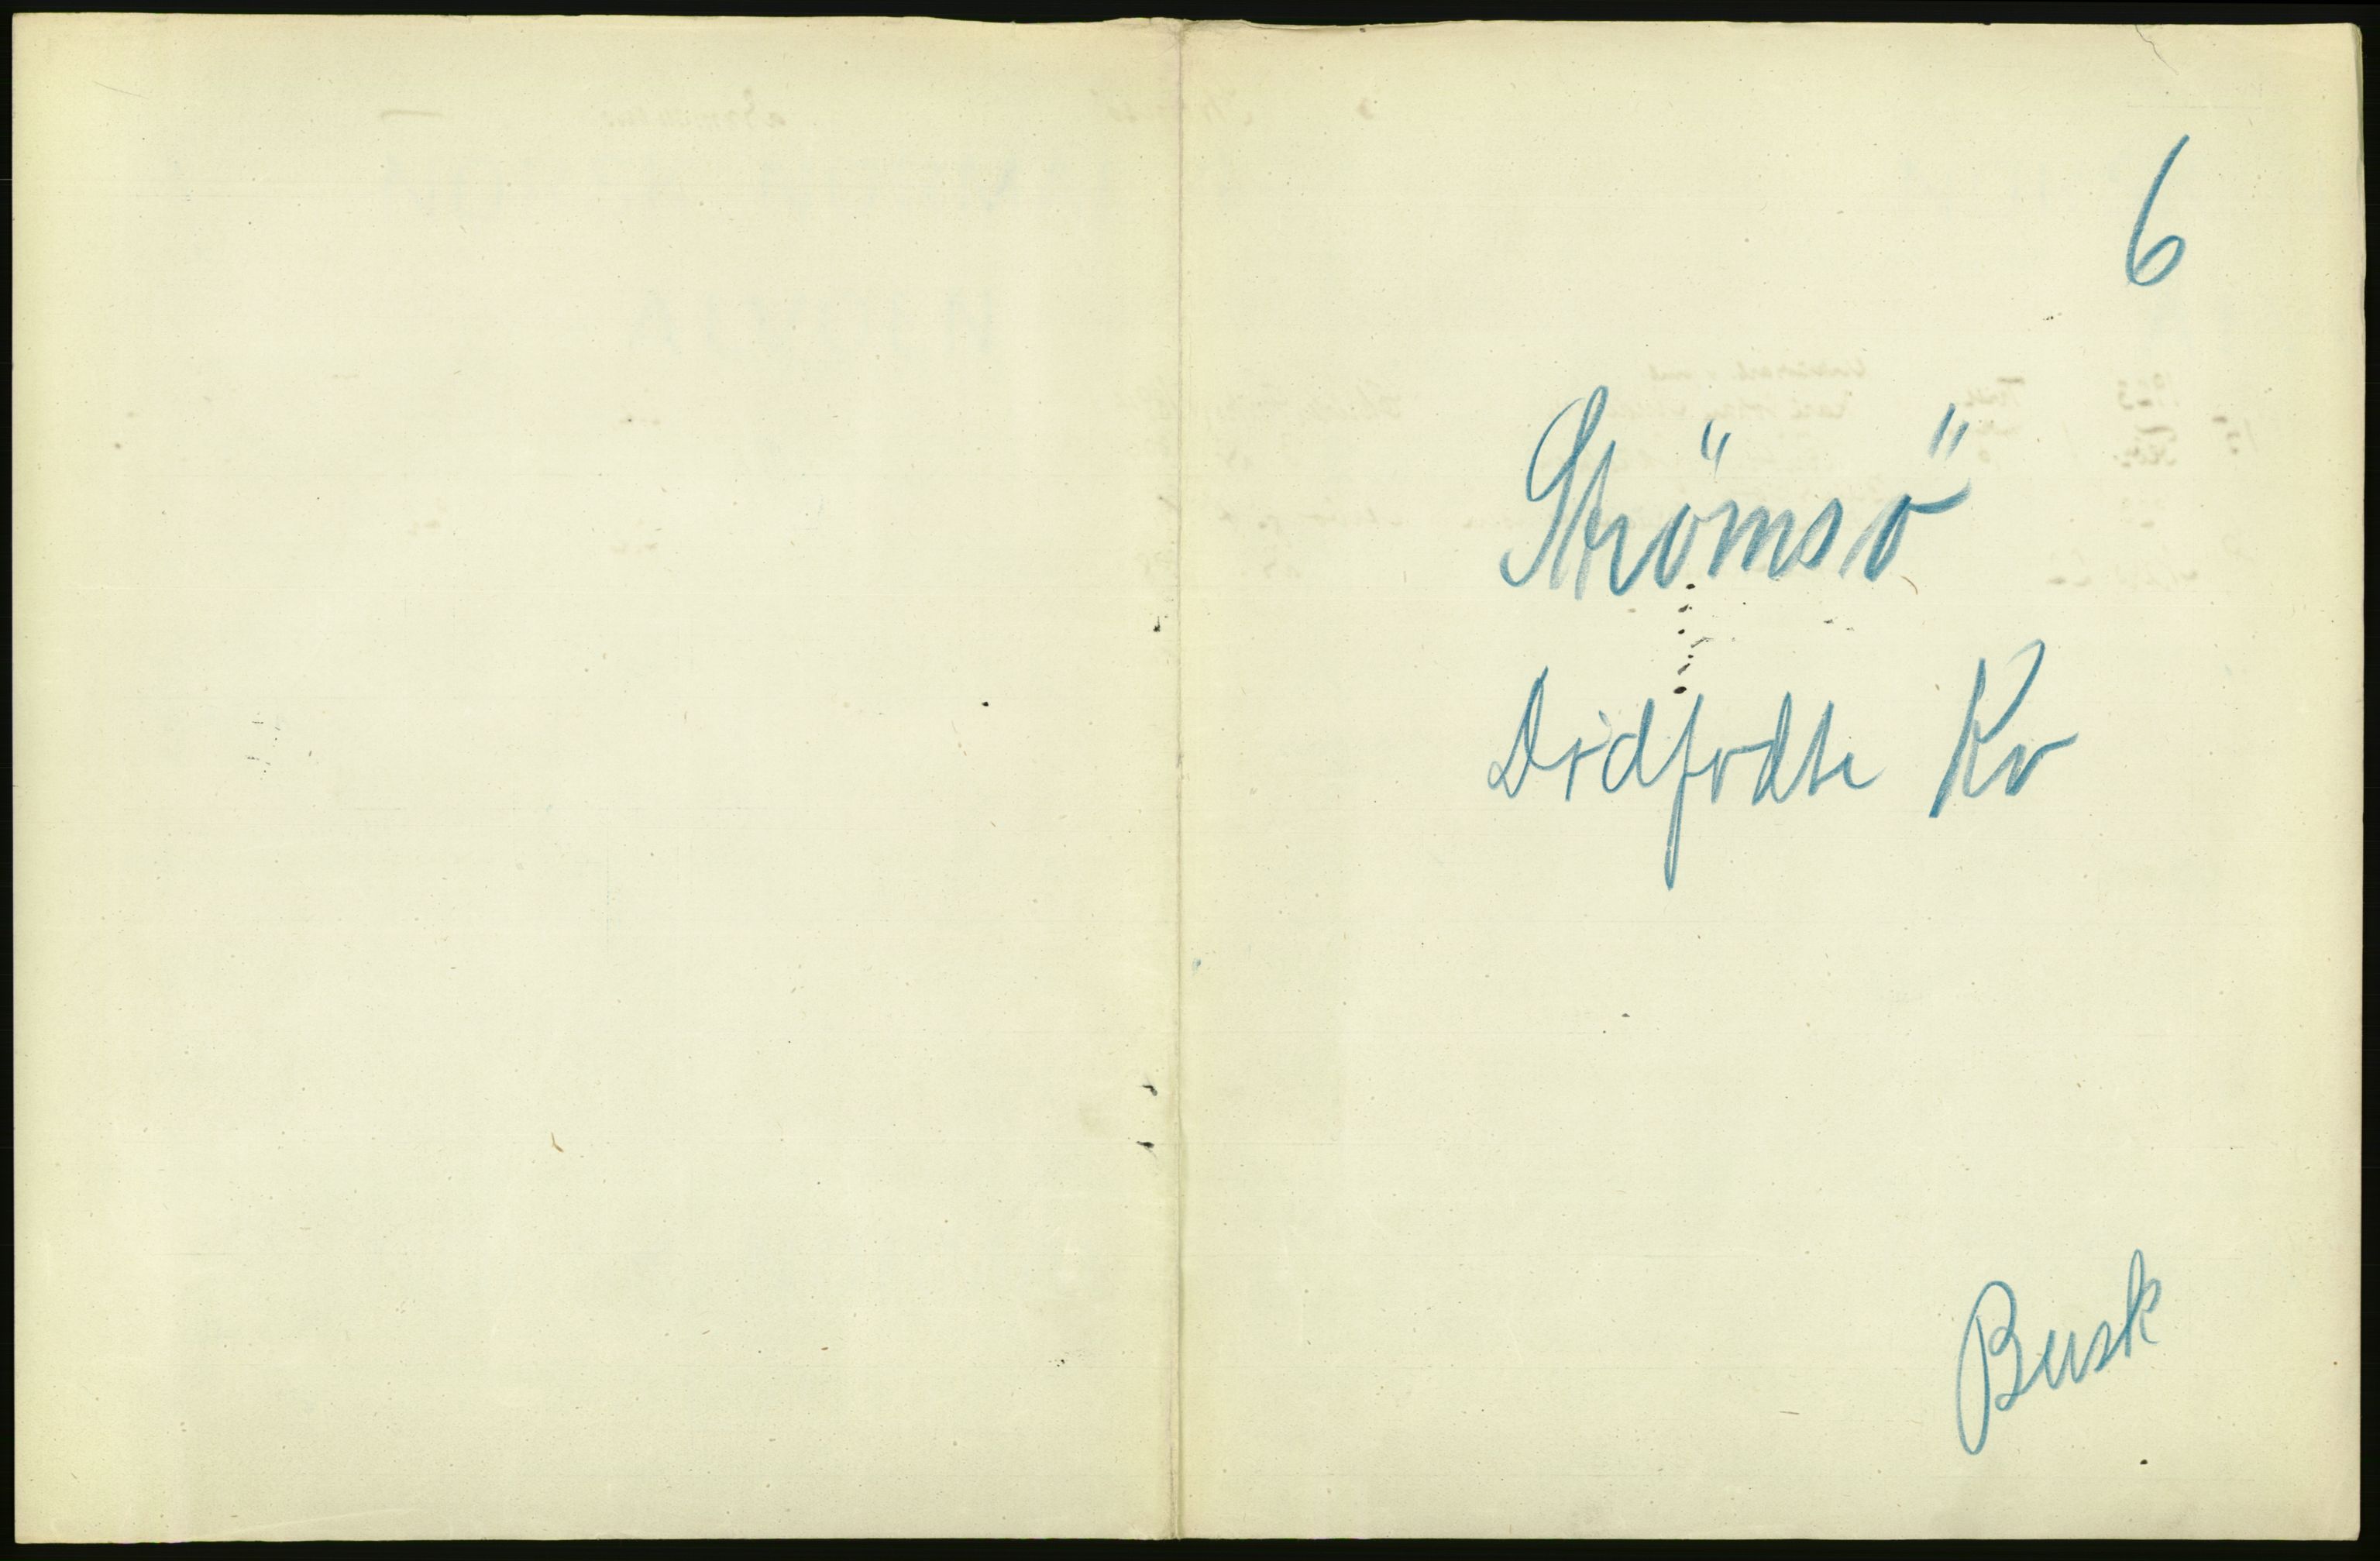 6
Strömsö
Dödfödte Kv
Busk